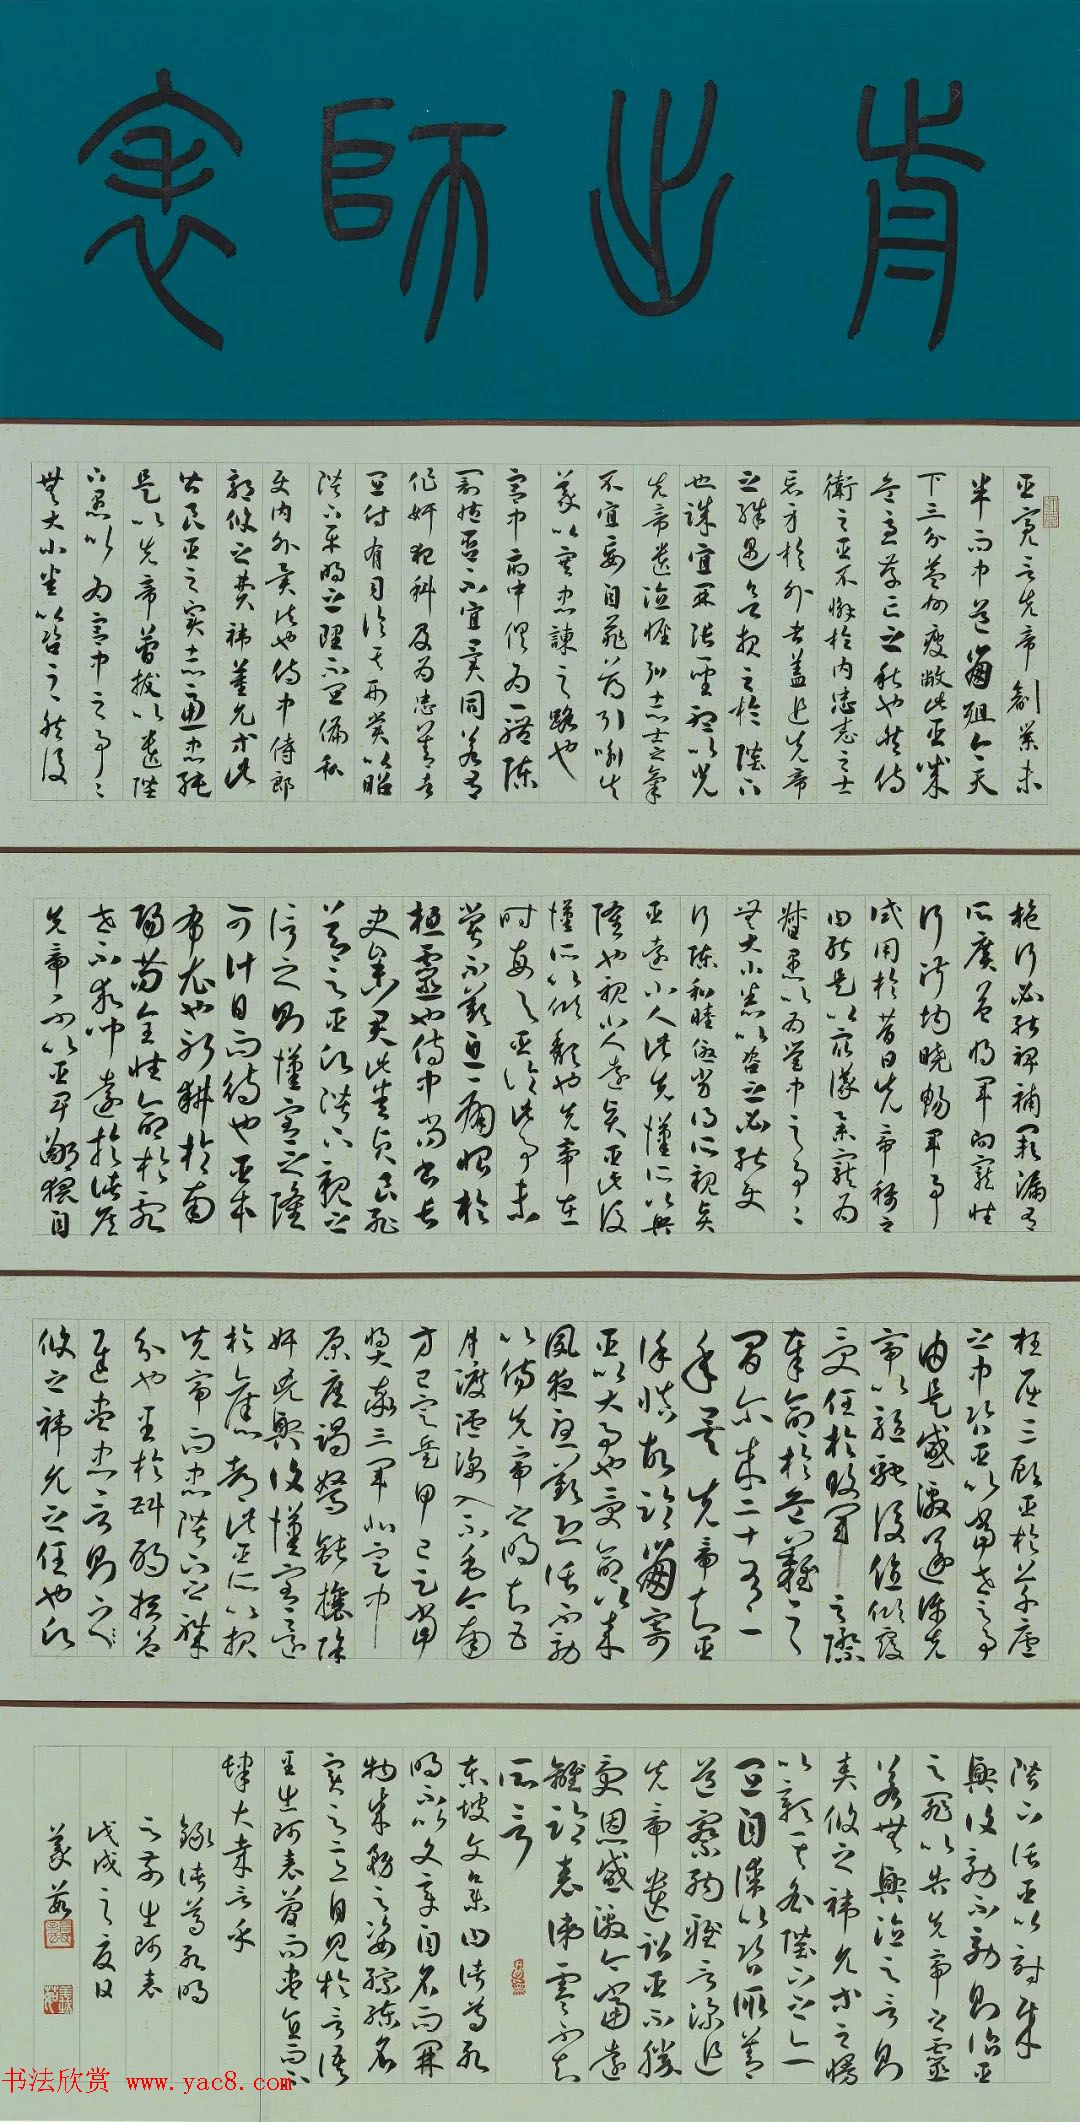 前出師表
臣亮言先帝創業未
半而中道崩殂今天
下三分益州疲敝此誠
危急存亡之秋也然侍
衛之臣不懈於內忠志之士
忘身於外者蓋追先帝
之殊遇欲報之於陛下
也誠宜開張聖聽以光
先帝遺德恢弘志士之氣
不宜妄自菲薄引喻失
義以塞忠諫之路也
宮中府中俱為一體陟
罰臧否不宜異同若有
作奸犯科及為忠善者
宜付有司論其刑賞以昭
陛下平明之理不宜偏私
使內外異法也侍中侍郎
郭攸之費禕董允等此
皆良臣之實志慮忠純
是以先帝簡拔以遺陛
下愚以為宮中之事々
無大小悉以咨之然後
施行必能裨補闕漏有
所廣益將軍向寵性
行淑均曉暢軍事
試用於昔日先帝稱之
曰能是以眾議舉寵為
督愚以為營中之事々
無大小悉以咨之必能使
行陣和睦優劣得所親賢
臣遠小人此先漢所以興
隆也親小人遠賢臣此後
漢所以傾頹也先帝在
時每與臣論此事未
嘗不歎息痛恨於
桓靈也侍中尚書長
史參軍此悉貞良死
節之臣願陛下親之
信之則漢室之隆
可計日而待也臣本
布衣也躬耕於南
陽苟全性命於亂
世不求聞達於諸侯
先帝不以臣卑鄙猥自
枉屈三顧臣於草廬
之中咨臣以當世之事
由是感激遂許先
帝以驅馳後值傾覆
受任於敗軍之際
奉命於危難之
間爾來二十有一
年矣先帝知臣
謹慎故臨崩寄
臣以大事也受命以來
夙夜憂歎恐託不効
以傷先帝之明故五
月渡瀘深入不毛今南
方已定兵甲已足當
獎率三軍北定中
原庶竭駑鈍攘除
奸凶興復漢室還
於舊都此臣所以報
先帝而忠陛下之職
分也至於斟酌損益
進盡忠言則
攸之禕允之任也願
陛下託臣以討賊
興復効不効則治臣
之罪以告先帝之靈
若無興德之言則
責攸之禕允等之慢
以彰其咎陛下亦
宜自謀以咨諏善
道察納雅言深追
先帝遺詔臣不勝
受恩感激今當遠
離臨表涕零不知
所言
東坡文集曰諸葛孔
明不以文章自名而開
物成務之姿綜練名
實之意自見於言語
至出師表簡而盡直而不
肆大哉言乎
錄諸葛孔明
之前出師表
戊戌之夏日
书法欣赏 www.yac8.com